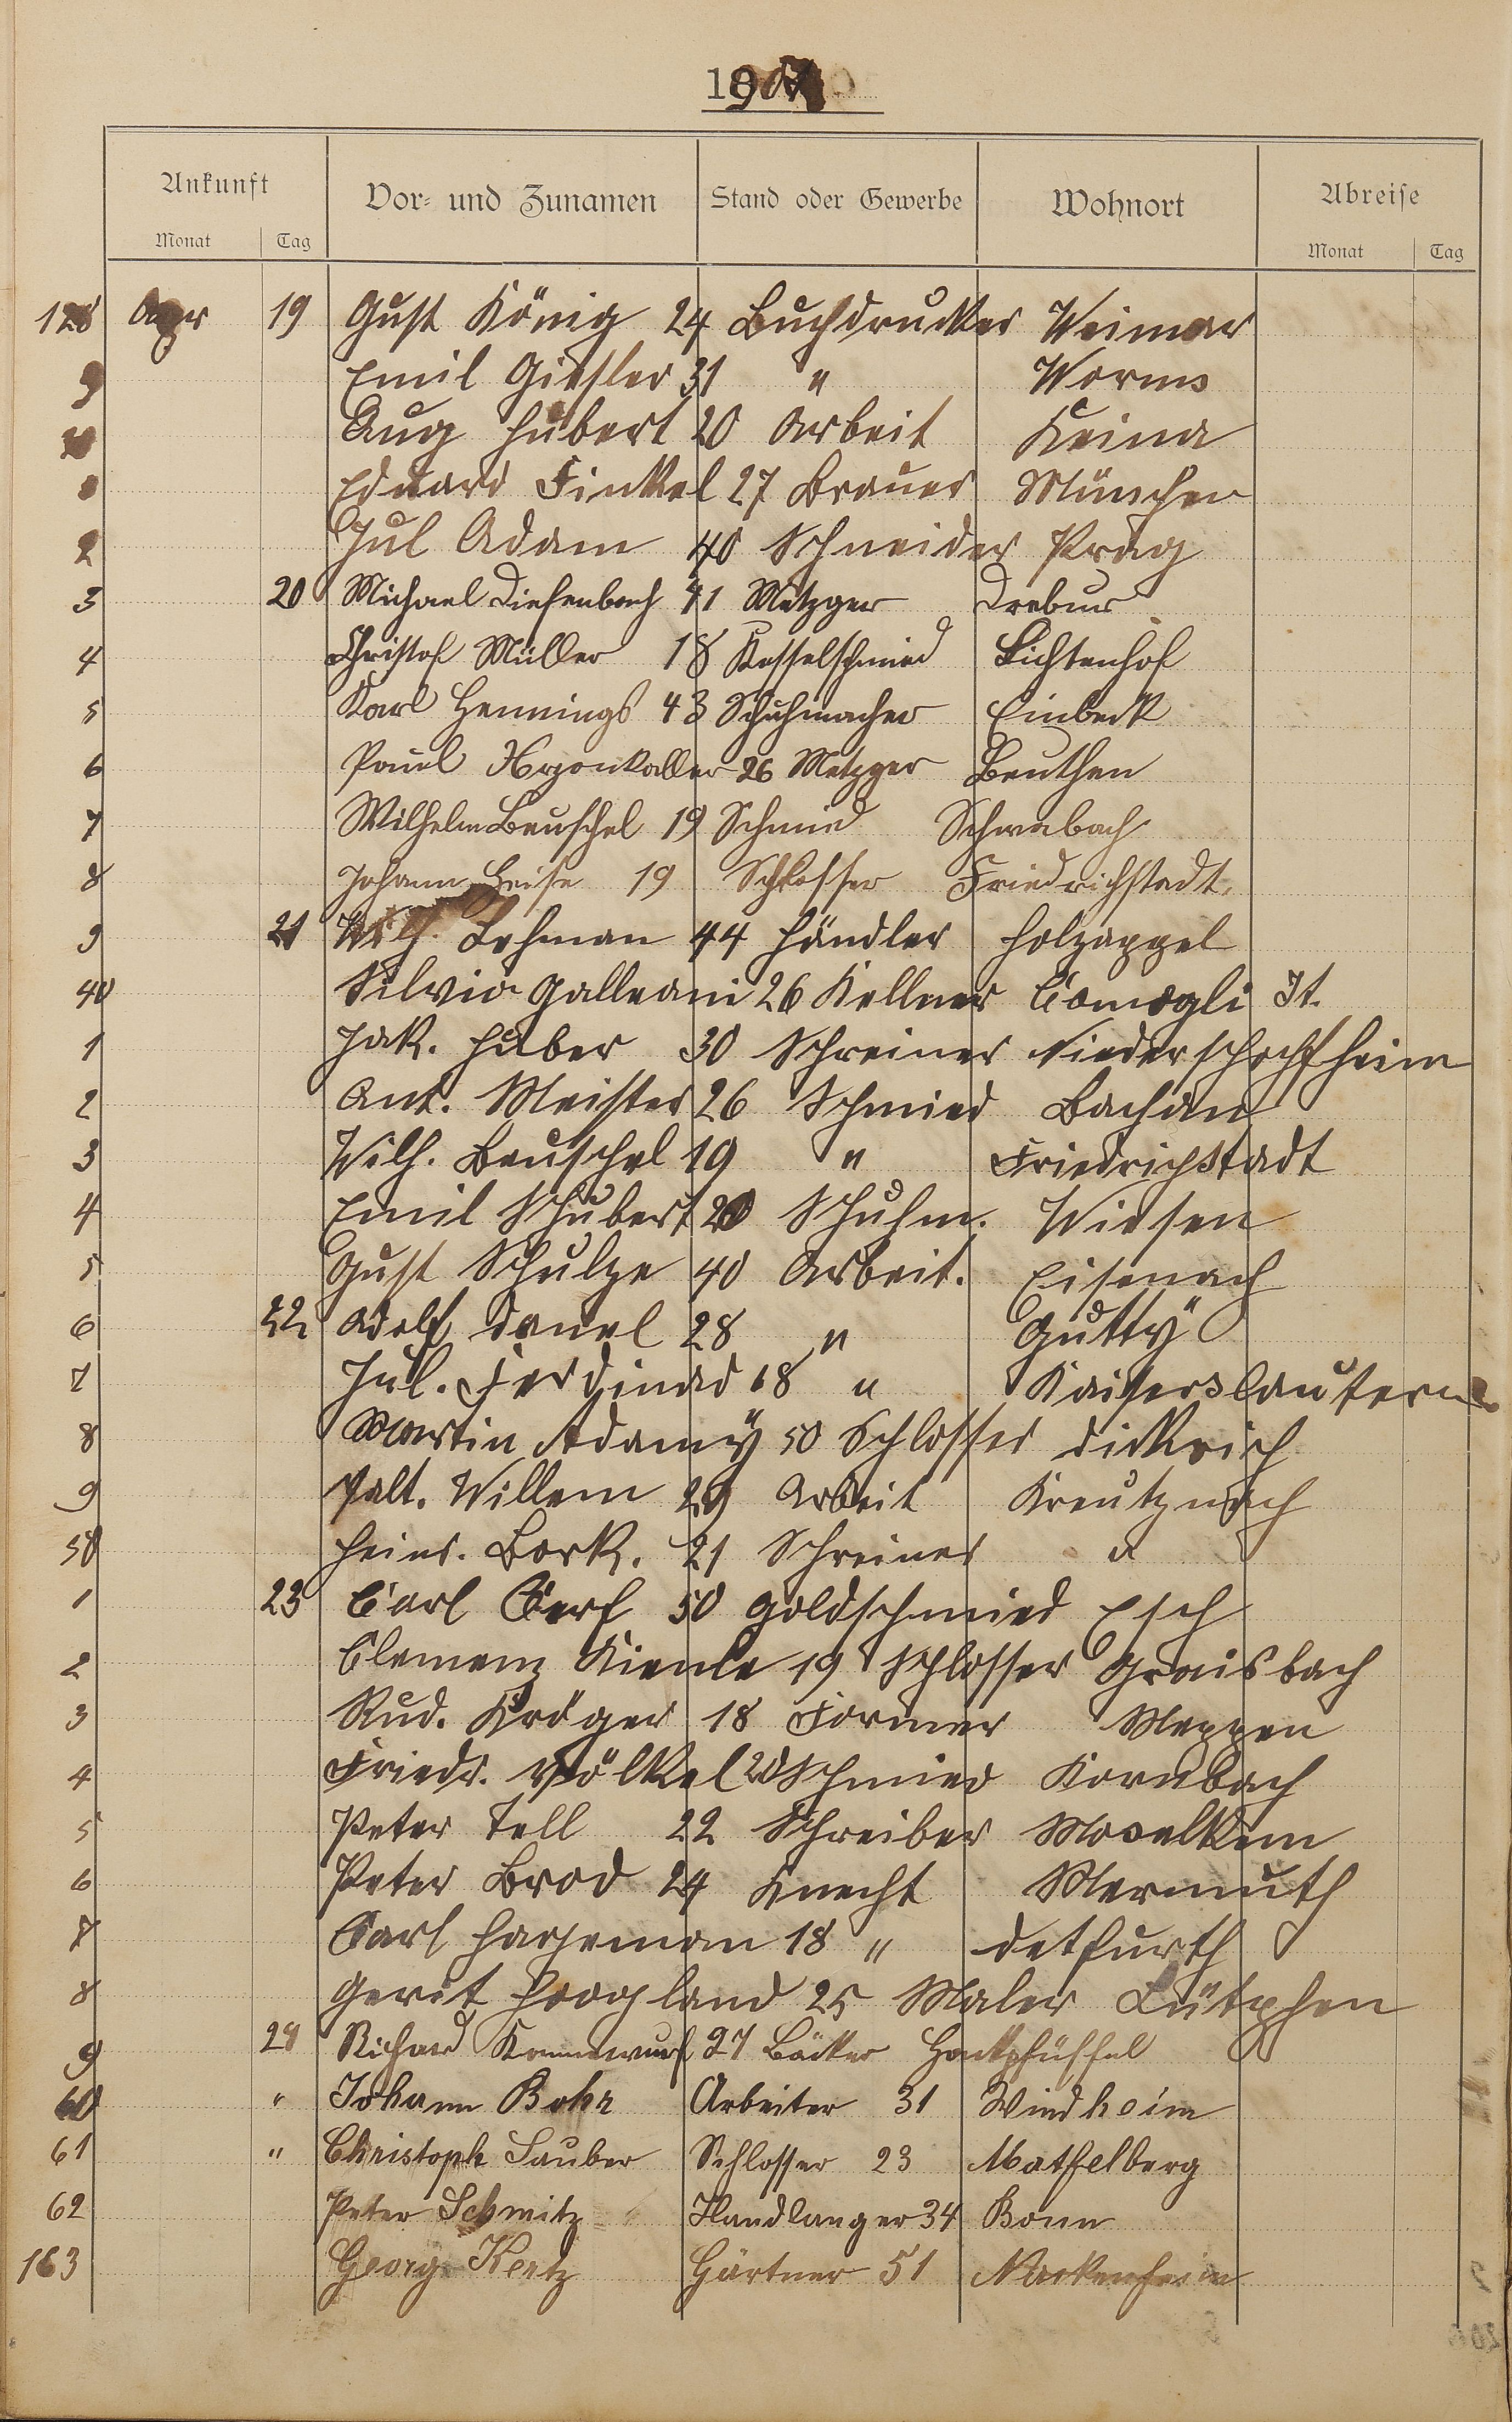 190
Ankunft Vor- und Zunamen Stand oder Gewerbe Wohnort Abreise
Monat Tag Monat Tag
128 Apr 19 Gust König 24 Buchdrucker Weimar
9 Emil Giesler 31 " Worms
Aug Hubert 20 Arbeit Keina
Eduard Finkel 27 Brauer München
2 Jul Adam 40 Schneider Prag
3 20 Michael Diefenbach 41 Metzger Trebur
4 Christof Müller 18 Kesselschmied Lichtenhof
5 Karl Hennings 43 Schuhmacher Einbeck
6 Paul 26 Metzger Beuthen
7 Wilhelm Beuschel 19 Schmied Schwabach
8 Johann Heise 19 Schlosser Friedrichstadt.
9 21 Wilh. Lehman 44 Händler Holzappel
40 Silvio Galleani 26 Kellner Camogli It.
1 Jak. Huber 30 Schreiner Niederschopfheim
2 Ant. Meister 26 Schmied Bachan
3 Wilh. Beuschel 19 " Friedrichstadt
4 Emil Schubert 20 Schuhm. Wiesen
5 Gust Schulze 40 Arbeit. Eisenach
6 22 Adolf Danel 28 " Gutty
7 Jul. Ferdinad 18 " Kaiserslautern
8 Martin Adamy 50 Schlosser Dikrich
9 Valt. Willem 29 Arbeit Kreutznach
50 Heinr. Bork. 21 Schreiner "
1 23 Carl Cerf 50 Goldschmied Esch
2 Clemenz Kienle 19 Schlosser Graisbach
3 Rud. Kröger 18 Former Meppen
4 Friedr. Völkel 20 Schmied Kornbach
5 Peter Tell 22 Schreiber Moselkern
6 Peter Brod 24 Knecht Mermuth
7 Carl Hageman 18 " Detfurth
8 Gerit Hoogland 25 Maler Zütphen
9 24 Richard Kannewurf 27 Bäcker Hackpfüffel
60 " Johann Bohr Arbeiter 31 Windheim
61 " Christoph Sauber Schlosser 23 Matfelberg
62 Peter Schmitz Handlanger 34 Bonn
163 Georg Kertz Gärtner 51 Nackenheim